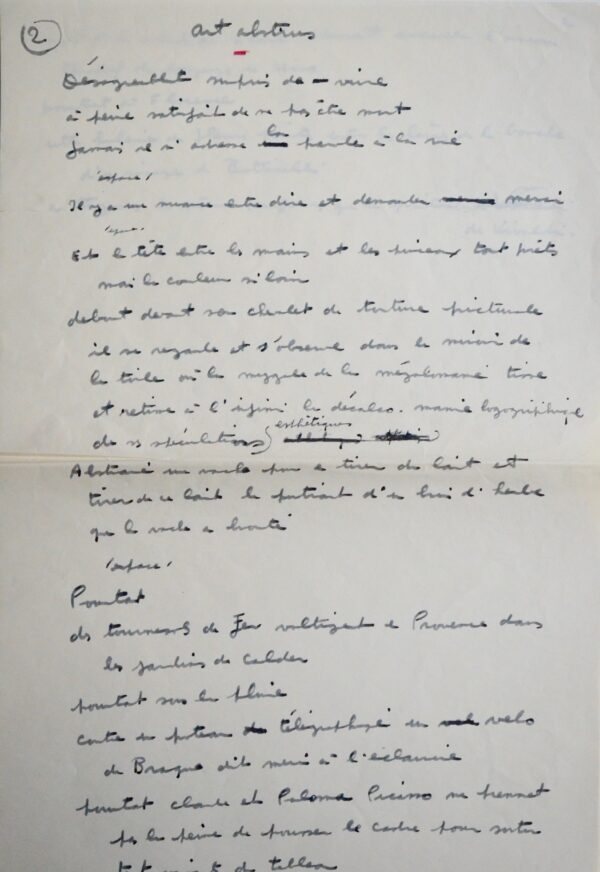 2
Art abstrus
Désagréablement surpris de vivre
à peine satisfait de ne pas être mort
jamais il n'adresse la parole à la vie
(espace)
Il y a une nuance entre dire et demander merci
(espace)
Et la tête entre les mains et les pinceaux tout prêts
mais la couleur si loin
debout devant son chevalet de torture picturale
il se regarde et s'observe dans le miroir de
la toile où la mygale de la mégalomanie tisse
et retisse à l'infini la décalco. manie logogriphique
de ses spéculations esthétiques
Abstraire une vache pour en tirer du lait et
tirer de ce lait le portrait d'un brin d'herbe
que la vache a brouté
(espace)
Pourtant
des tournesols de Fer voltigent en Provence dans
les jardins de Calder
pourtant sous la pluie
contre un poteau télégraphique un vélo
de Braque dit merci à l'éclaircie
pourtant Claude et Paloma Picasso ne prennent
pas la peine de pousser le cadre pour sortir
du tableau